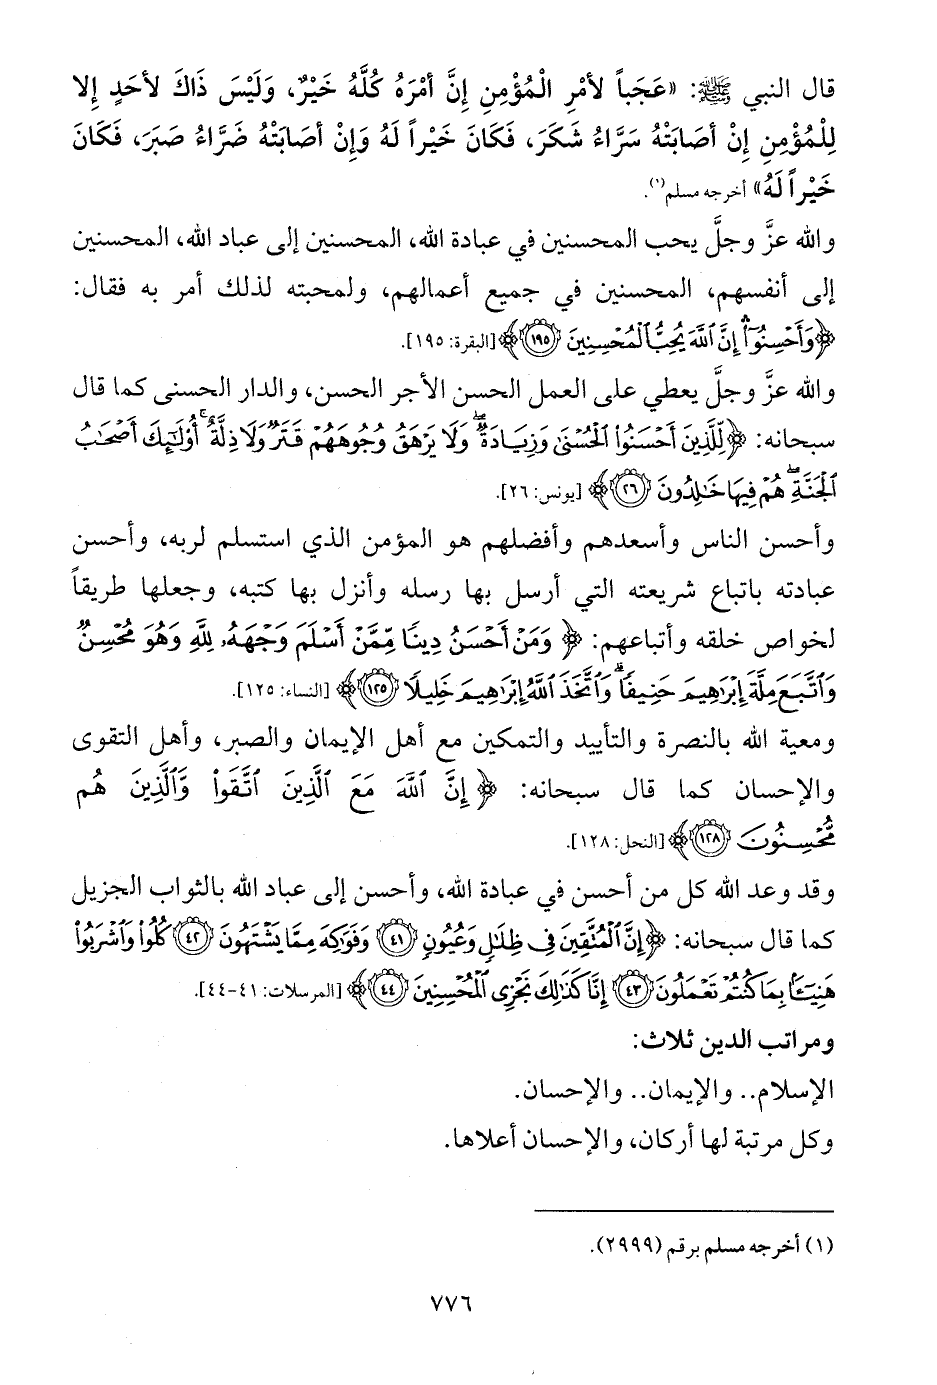 قال النبي ﷺ: «عَجَباً لأمْرِ الْمُؤْمِنِ إِنَّ أمْرَهُ كُلَّهُ خَيْرٌ، وَلَيْسَ ذَاكَ لأحَدٍ إِلا
لِلْمُؤْمِنِ إِنْ أصَابَتْهُ سَرَّاءُ شَكَرَ، فَكَانَ خَيْراً لَهُ وَإِنْ أصَابَتْهُ ضَرَّاءُ صَبَرَ، فَكَانَ
خَيْراً لَهُ» أخرجه مسلم(١).
والله عزَّ وجلَّ يحب المحسنين في عبادة الله، المحسنين إلى عباد الله، المحسنين
إلى أنفسهم، المحسنين في جميع أعمالهم، ولمحبته لذلك أمر به فقال:
﴿وَأَحْسِنُوٓا۟ۛ إِنَّ ٱللَّهَ يُحِبُّ ٱلْمُحْسِنِينَ ١٩٥﴾ [البقرة: ١٩٥].
والله عزَّ وجلَّ يعطي على العمل الحسن الأجر الحسن، والدار الحسنى كما قال
سبحانه: ﴿لِّلَّذِينَ أَحْسَنُوا۟ ٱلْحُسْنَىٰ وَزِيَادَةٌۖ وَلَا يَرْهَقُ وُجُوهَهُمْ قَتَرٌ وَلَا ذِلَّةٌۚ أُو۟لَٰٓئِكَ أَصْحَٰبُ
ٱلْجَنَّةِۖ هُمْ فِيهَا خَٰلِدُونَ ٢٦﴾ [يونس: ٢٦].
وأحسن الناس وأسعدهم وأفضلهم هو المؤمن الذي استسلم لربه، وأحسن
عبادته باتباع شريعته التي أرسل بها رسله وأنزل بها كتبه، وجعلها طريقاً
لخواص خلقه وأتباعهم: ﴿وَمَنْ أَحْسَنُ دِينًا مِّمَّنْ أَسْلَمَ وَجْهَهُۥ لِلَّهِ وَهُوَ مُحْسِنٌ
وَٱتَّبَعَ مِلَّةَ إِبْرَٰهِيمَ حَنِيفًاۗ وَٱتَّخَذَ ٱللَّهُ إِبْرَٰهِيمَ خَلِيلًا ١٢٥﴾ [النساء: ١٢٥].
ومعية الله بالنصرة والتأييد والتمكين مع أهل الإيمان والصبر، وأهل التقوى
والإحسان كما قال سبحانه: ﴿إِنَّ ٱللَّهَ مَعَ ٱلَّذِينَ ٱتَّقَوا۟ وَّٱلَّذِينَ هُم
مُّحْسِنُونَ ١٢٨﴾ [النحل: ١٢٨].
وقد وعد الله كل من أحسن في عبادة الله، وأحسن إلى عباد الله بالثواب الجزيل
كما قال سبحانه: ﴿إِنَّ ٱلْمُتَّقِينَ فِى ظِلَٰلٍ وَعُيُونٍ ٤١ وَفَوَٰكِهَ مِمَّا يَشْتَهُونَ ٤٢ كُلُوا۟ وَٱشْرَبُوا۟
هَنِيٓـًٔۢا بِمَا كُنتُمْ تَعْمَلُونَ ٤٣ إِنَّا كَذَٰلِكَ نَجْزِى ٱلْمُحْسِنِينَ ٤٤﴾ [المرسلات: ٤١-٤٤].
ومراتب الدين ثلاث:
الإسلام.. والإيمان.. والإحسان.
وكل مرتبة لها أركان، والإحسان أعلاها.
(١) أخرجه مسلم برقم (٢٩٩٩).
٧٧٦